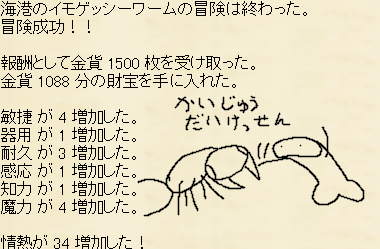 海港のイモゲッシーワームの冒険は終わった。
冒険成功！！
報酬として金貨 1500 枚を受け取った。
金貨 1088 分の財宝を手に入れた。
敏捷 が 4 増加した。
器用 が 1 増加した。
耐久 が 3 増加した。
感応 が 1 増加した。
知力 が 1 増加した。
魔力 が 4 増加した。
情熱が 34 増加した！
かいじゅう
だいけっせん